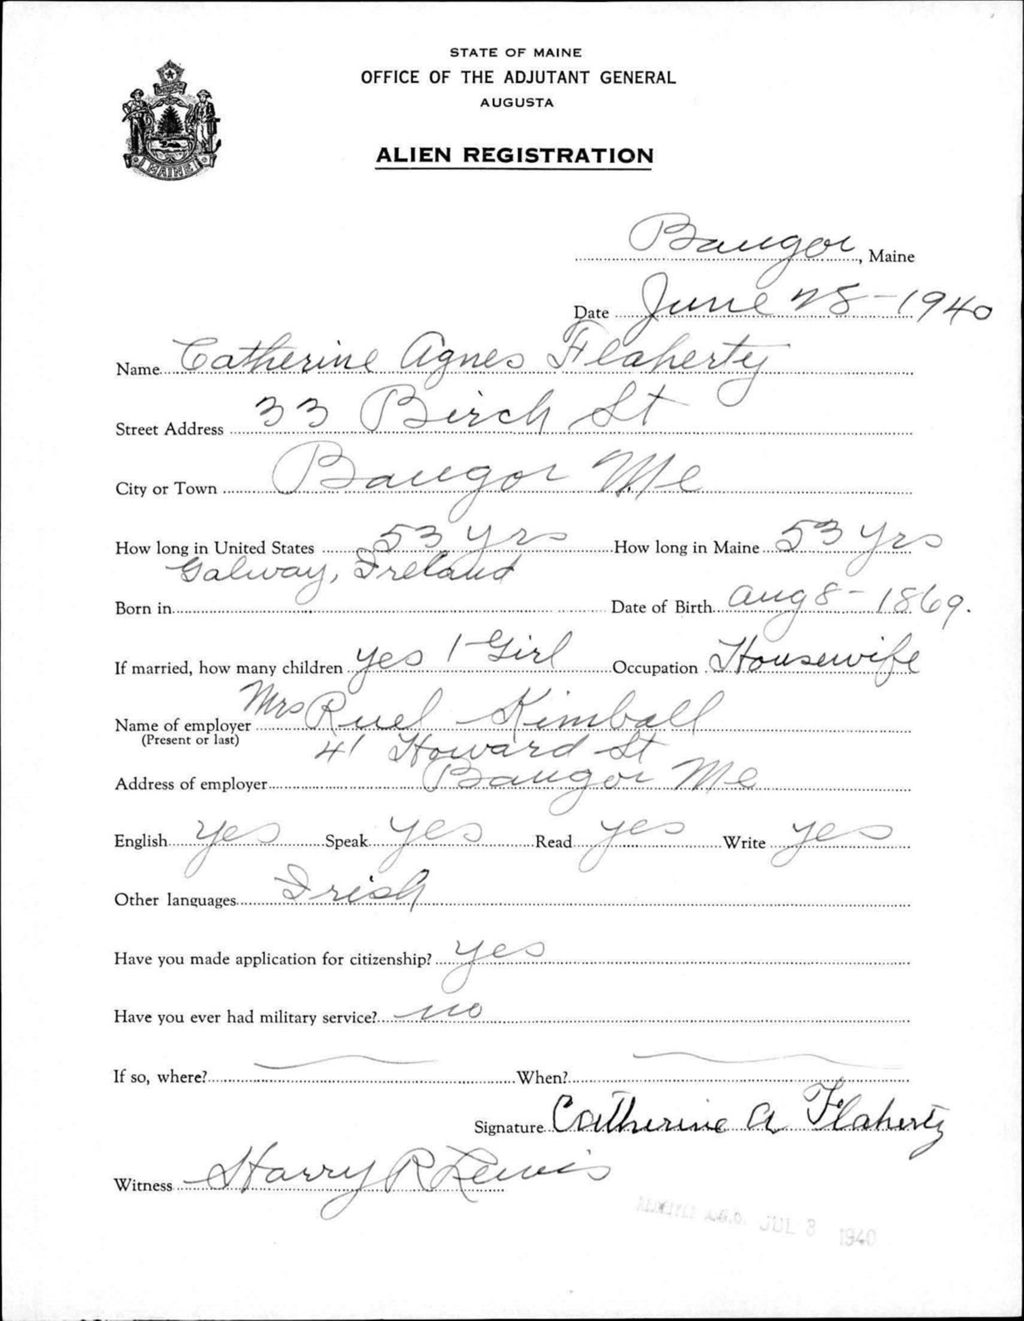 STATE OF MAINE
OFFICE OF THE ADJUTANT GENERAL
AUGUSTA
ALIEN REGISTRATION
MAINE
Bangor, Maine
Date June 28-1940
Name Catherine Agnes Flaherty
Street Address 33 Birch St
City or Town Bangor Me
How long in United States 53 yrs How long in Maine 53 yrs
Galway, Ireland
Born in Date of Birth Aug 8-1869.
If married, how many children yes 1 Girl Occupation Housewife
Name of employer Mrs Ruel Kimball
(Present or last)
41 Howard St
Address of employer Bangor Me
English yes Speak yes Read yes Write yes
Other languages Irish
Have you made application for citizenship? yes
Have you ever had military service? no
If so, where? When?
Signature Catherine A Flaherty
Witness Harry R Lewis
A.G.O. JUL 3 1940